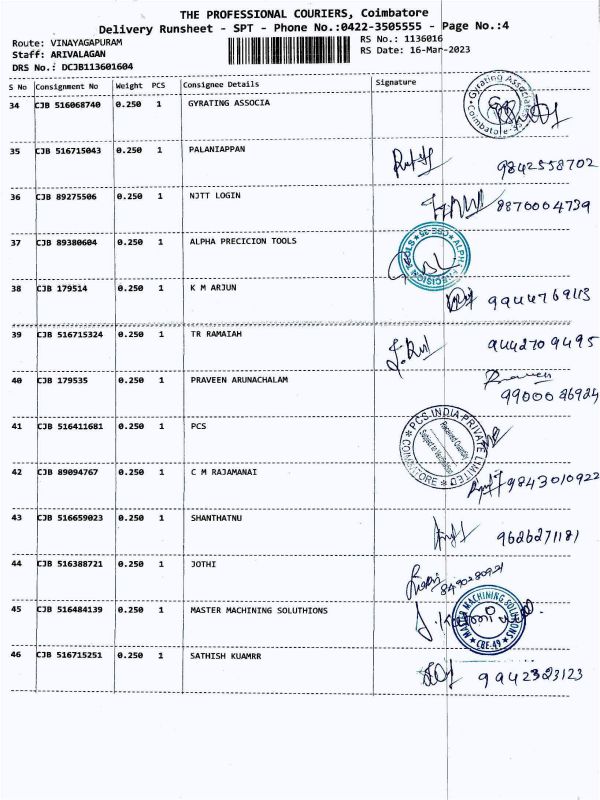 THE PROFESSIONAL COURIERS, Coimbatore
Delivery Runsheet - SPT - Phone No.:0422-3505555 - Page No.:4
Route: VINAYAGAPURAM
Staff: ARIVALAGAN
DRS No.: DCJB113601604
RS No.: 1136016
RS Date: 16-Mar-2023
S No Consignment No Weight PCS Consignee Details Signature
34 CJB 516068740 0.250 1 GYRATING ASSOCIA
Gyrating Associates Coimbatore-35
35 CJB 516715043 0.250 1 PALANIAPPAN 9842558702
36 CJB 89275506 0.250 1 NJTT LOGIN 8870004739
37 CJB 89380604 0.250 1 ALPHA PRECICION TOOLS
ALPHA PRECISION TOOLS CBE-35
38 CJB 179514 0.250 1 K M ARJUN 9944769113
39 CJB 516715324 0.250 1 TR RAMAIAH 9442709495
40 CJB 179535 0.250 1 PRAVEEN ARUNACHALAM Praveen
9900026924
41 CJB 516411681 0.250 1 PCS
PCS INDIA PRIVATE LIMITED COIMBATORE
Received Quantity
Subject to Verification
42 CJB 89094767 0.250 1 C M RAJAMANAI 9843010922
43 CJB 516659023 0.250 1 SHANTHATNU 9626271181
44 CJB 516388721 0.250 1 JOTHI 8490280921
45 CJB 516484139 0.250 1 MASTER MACHINING SOLUTHIONS
MASTER MACHINING SOLUTIONS CBE-49
46 CJB 516715251 0.250 1 SATHISH KUAMRR 9942323123